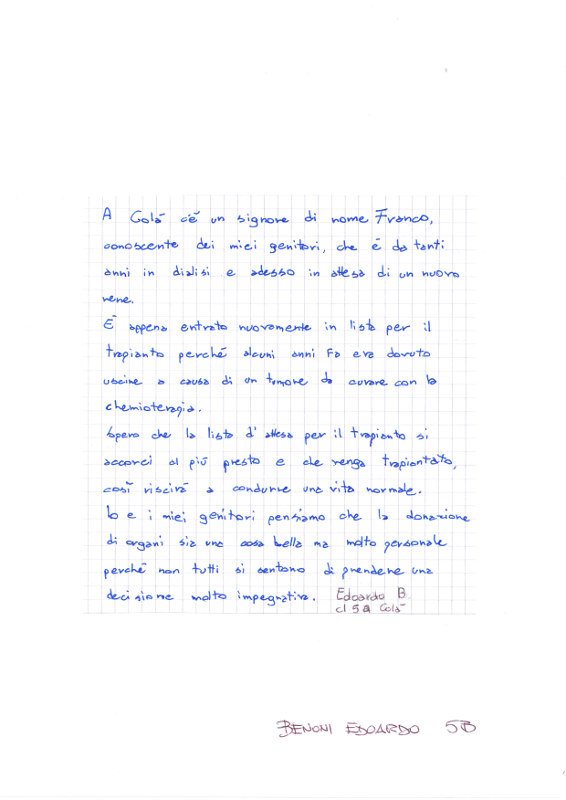 A Colá c'é un signore di nome Franco,
conoscente dei miei genitori, che é da tanti
anni in dialisi e adesso in attesa di un nuovo
rene.
É appena entrato nuovamente in lista per il
trapianto perché alcuni anni fa era dovuto
uscire a causa di un tumore da curare con la
chemioterapia.
Spero che la lista d'attesa per il trapianto si
accorci al piú presto e che venga trapiantato,
cosí riuscirá a condurre una vita normale.
Io e i miei genitori pensiamo che la donazione
di organi sia una cosa bella ma molto personale
perché non tutti si sentono di prendere una
decisione molto impegnativa. Edoardo B
cl 5a Colá
BENONI EDOARDO 5B